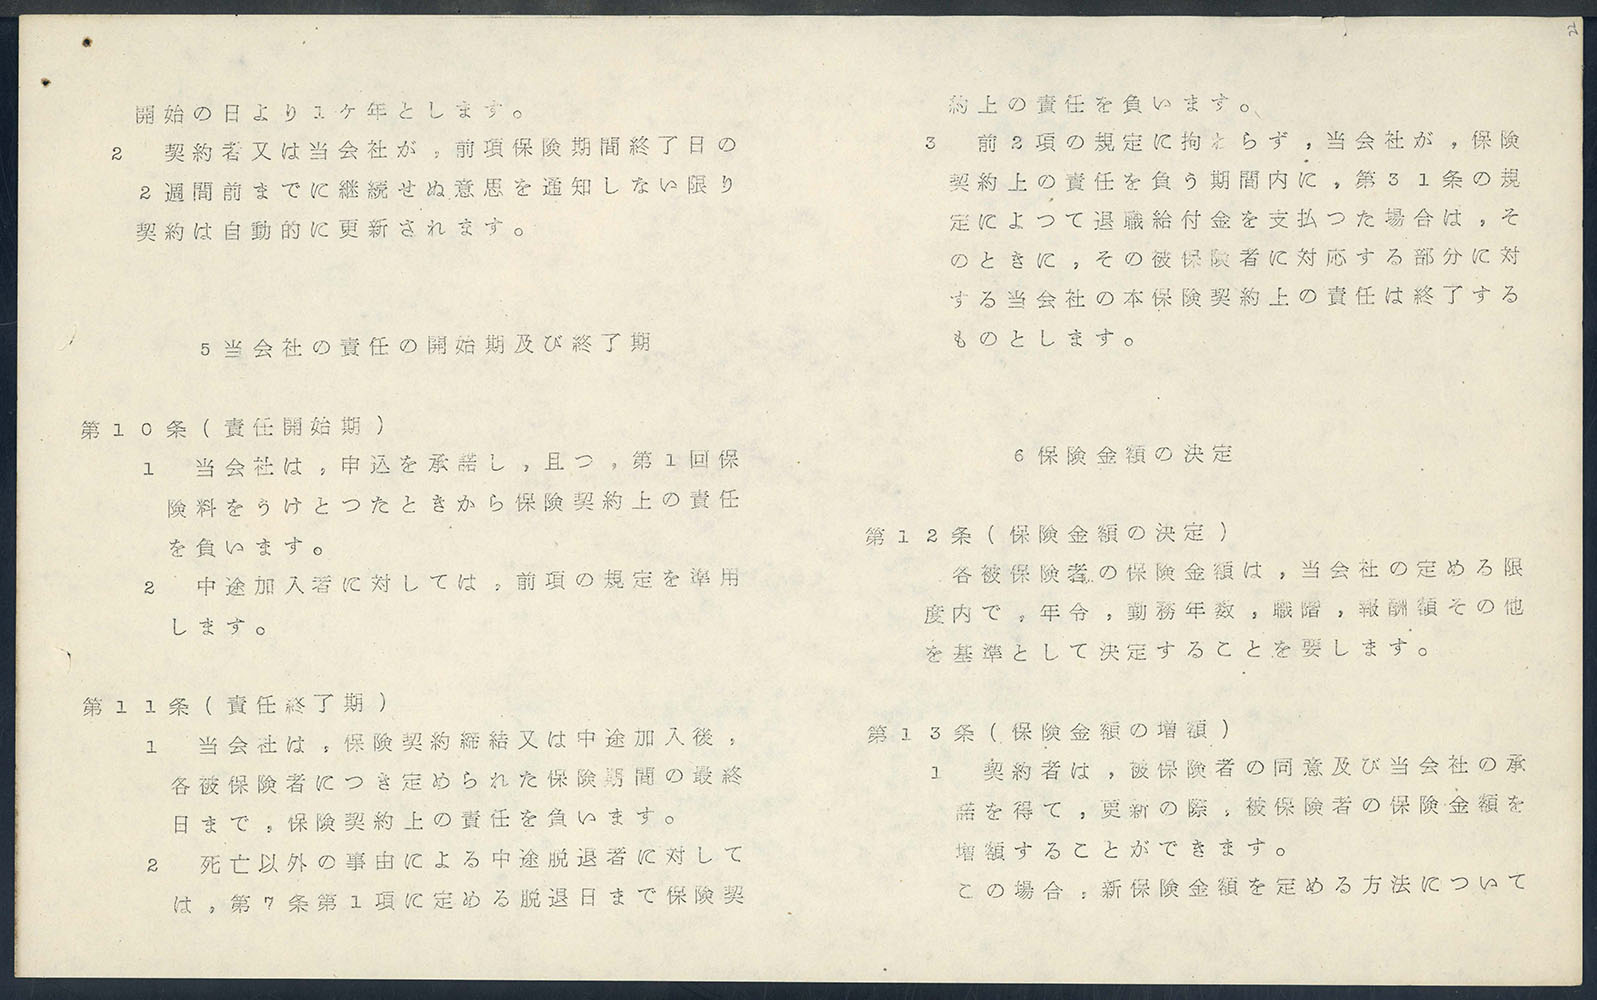 開始の日より1ケ年とします。
2　契約者又は当会社が,前項保険期間終了日の
2週間前までに継続せぬ意思を通知しない限り
契約は自動的に更新されます。
5当会社の責任の開始期及び終了期
第10条(責任開始期)
1　当会社は,申込を承諾し,且つ,第1回保
険料をうけとつたときから保険契約上の責任
を負います。
2　中途加入者に対しては,前項の規定を準用
します。
第11条(責任終了期)
1　当会社は,保険契約締結又は中途加入後,
各被保険者につき定められた保険期間の最終
日まで,保険契約上の責任を負います。
2　死亡以外の事由による中途脱退者に対して
は,第7条第1項に定める脱退日まで保険契
約上の責任を負います。
3　前2項の規定に拘わらず,当会社が,保険
契約上の責任を負う期間内に,第31条の規
定によつて退職給付金を支払つた場合は,そ
のときに,その被保険者に対応する部分に対
する当会社の本保険契約上の責任は終了する
ものとします。
6保険金額の決定
第12条(保険金額の決定)
各被保険者の保険金額は,当会社の定める限
度内で,年令,勤務年数,職階,報酬額その他
を基準として決定することを要します。
第13条(保険金額の増額)
1　契約者は,被保険者の同意及び当会社の承
諾を得て,更新の際,被保険者の保険金額を
増額することができます。
この場合,新保険金額を定める方法について